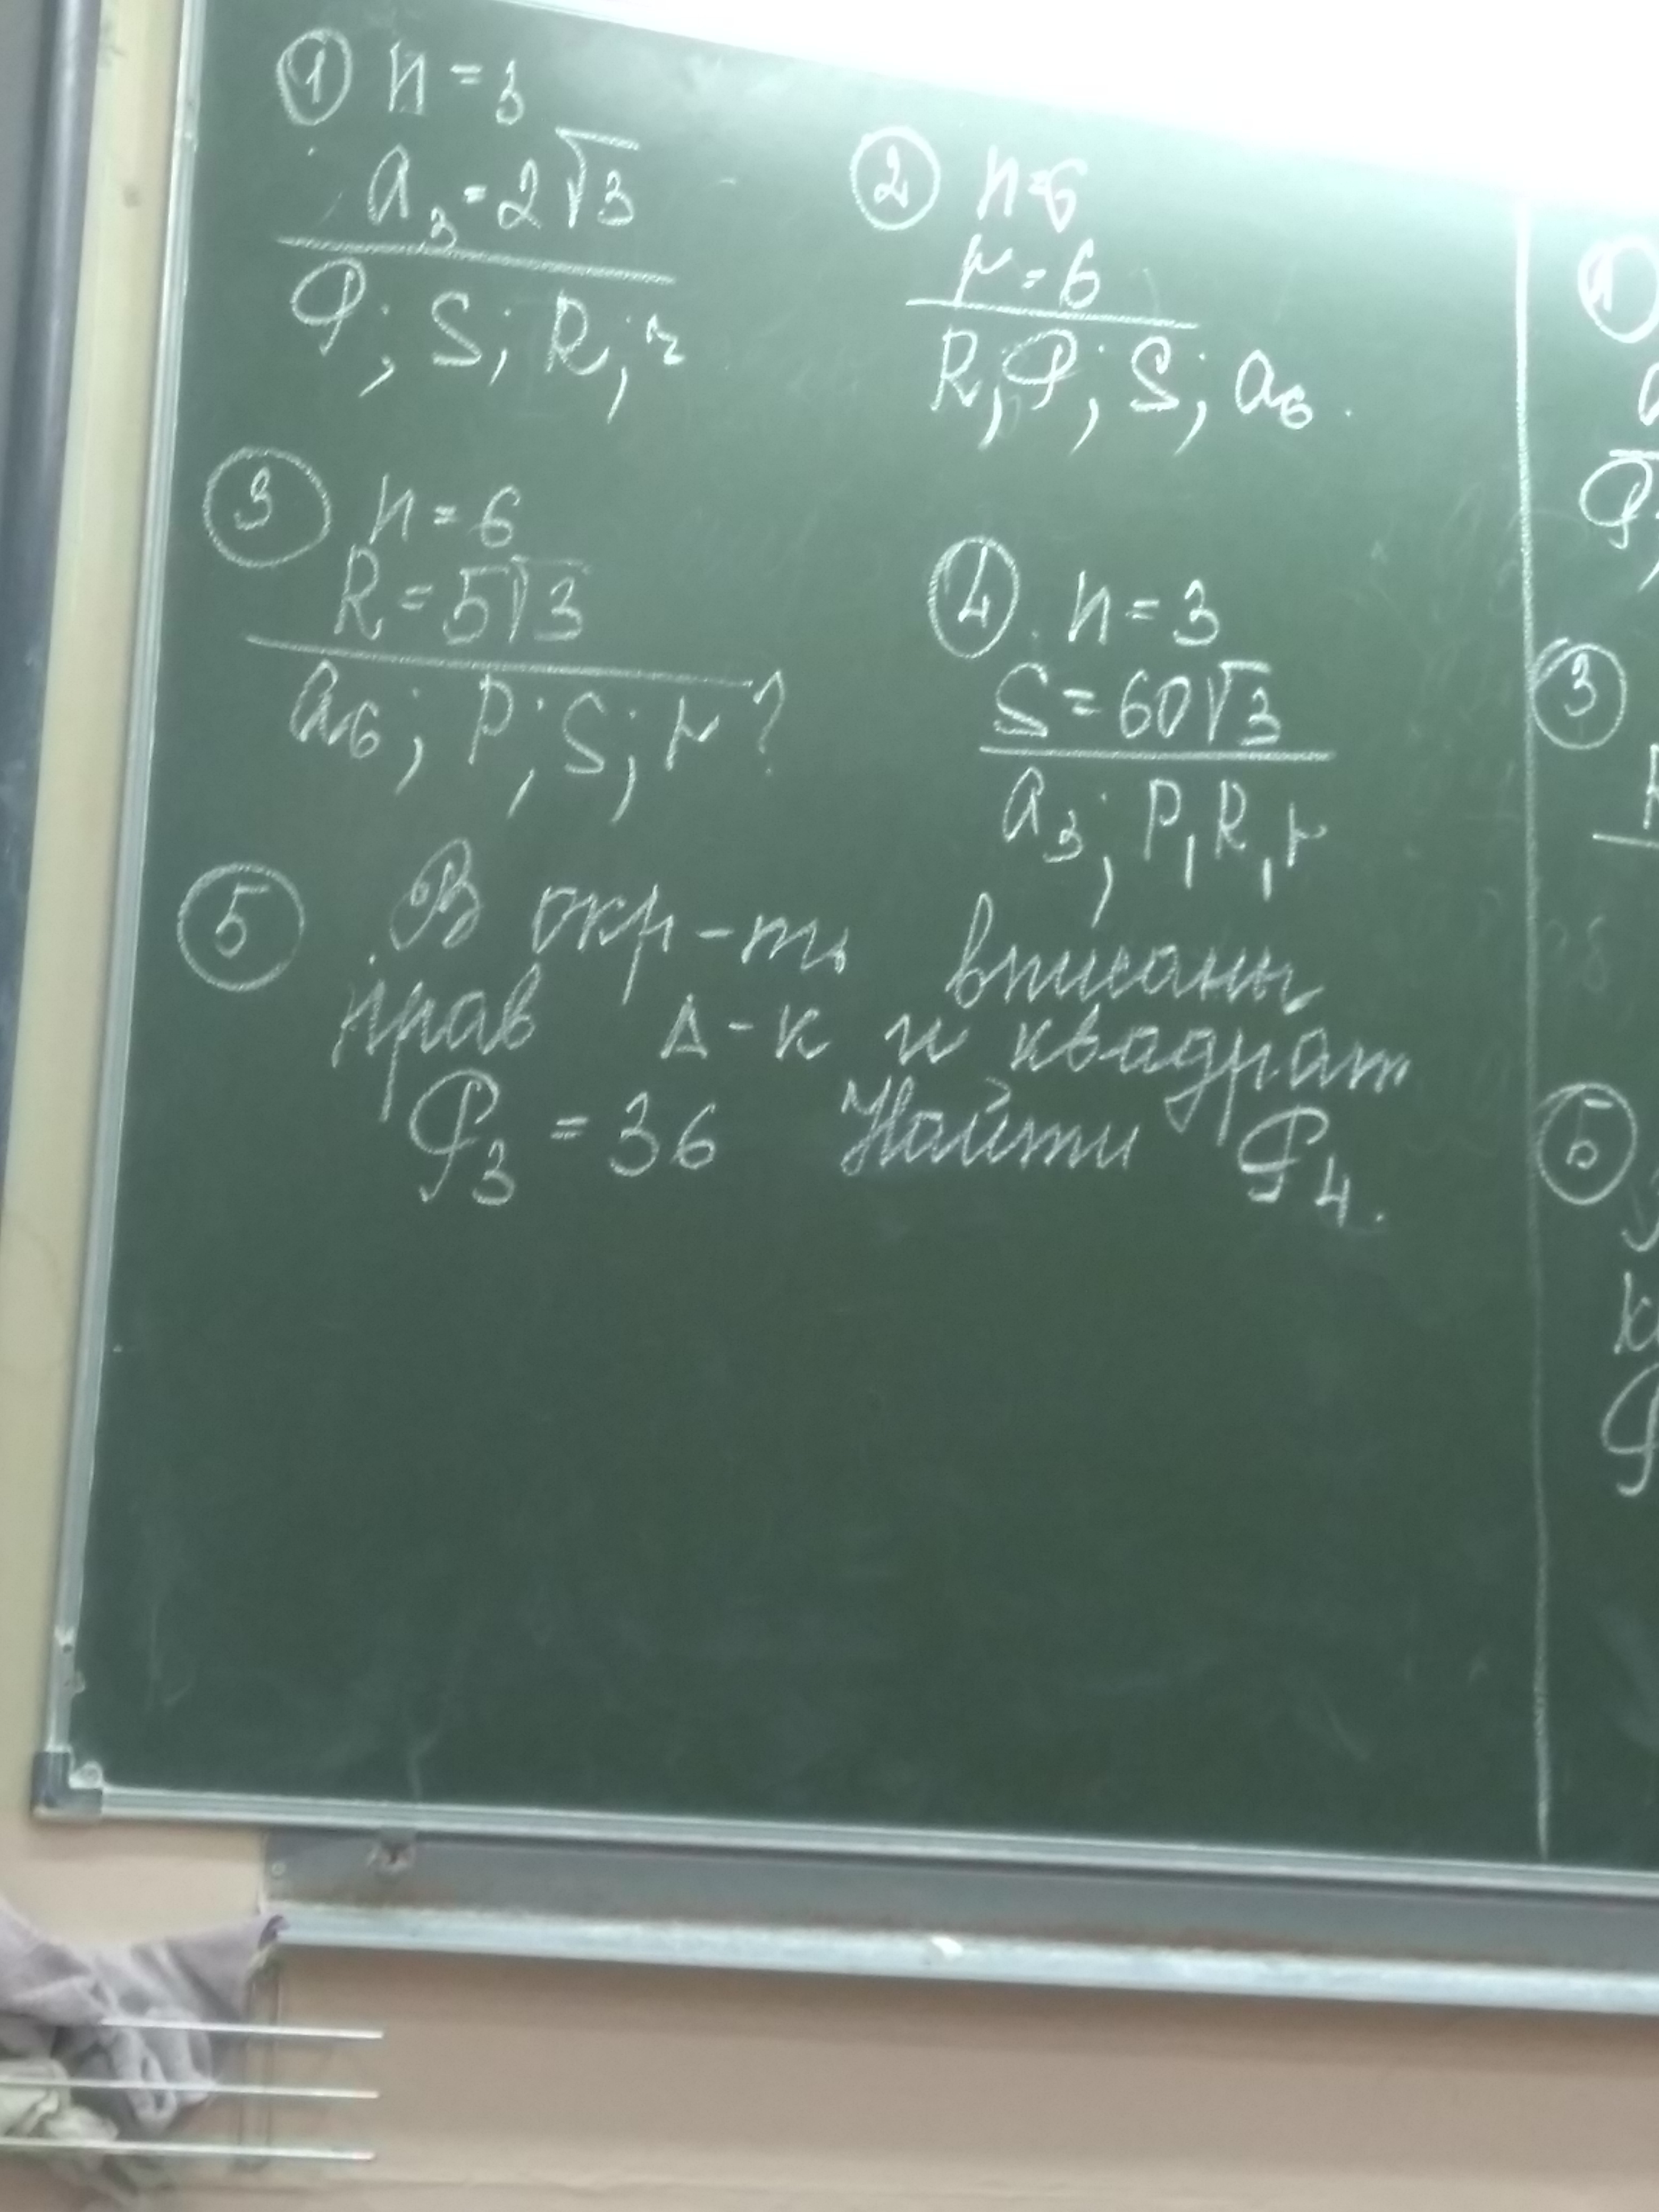 ① n = 3
a₃ = 2√3
P; S; R; r
② n = 6
r = 6
R; P; S; a₆.
③ n = 6
R = 5√3
a₆; P; S; r ?
④ n = 3
S = 60√3
a₃; P, R, r
⑤ В окр-ть вписаны
прав Δ-к и квадрат
P₃ = 36 Найти P₄.
①
③
⑤